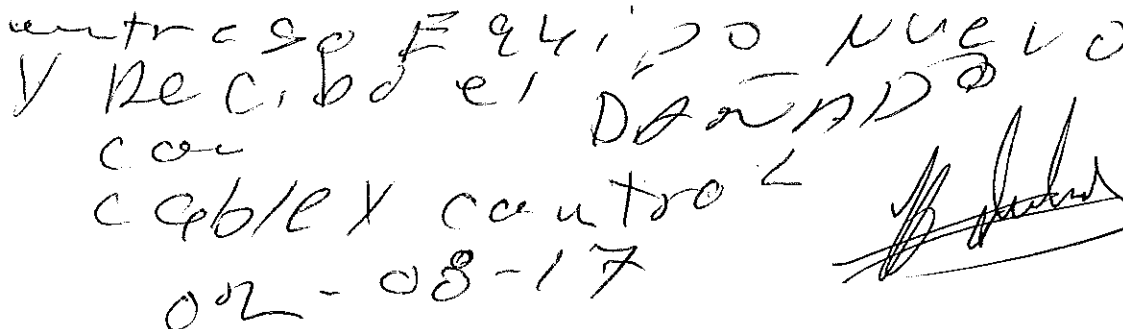 entrego Equipo Nuevo
Y Recibo el DAÑADO
con
cable y control
02-08-17